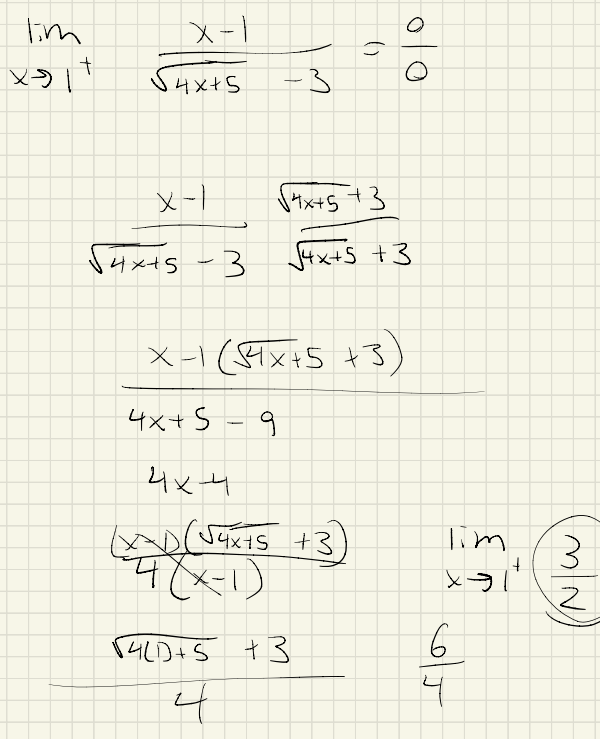 lim x→1⁺ (x-1)/(√(4x+5) -3) = 0/0
(x-1)/(√(4x+5) - 3) (√(4x+5) +3)/(√(4x+5) +3)
x-1(√(4x+5) +3)
4x+5 - 9
4x-4
(x-1)(√(4x+5) +3)/4(x-1)
lim x→1⁺ 3/2
(√(4(1)+5) +3)/4
6/4